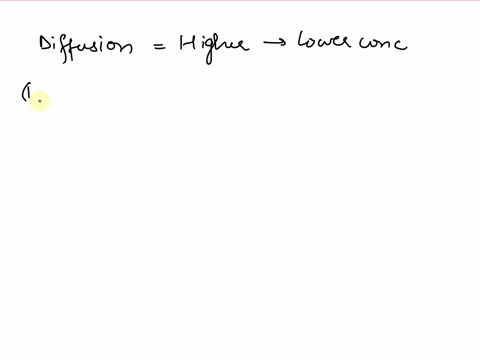 Diffusion = Higher → Lower conc
(1